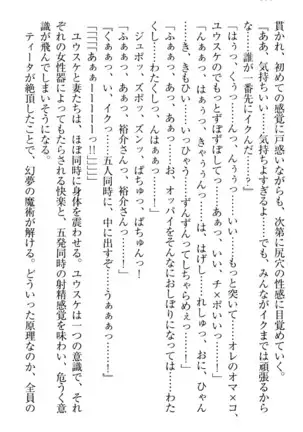 貫かれ、初めての感覚に戸惑いながらも、次第に尻穴の性感に目覚めていく。
「ああ、気持ちいい、気持ちよすぎるよ……でも、みんながイクまでは頑張るから
な……誰が一番先にイクんだ……？」
「はぅっ、くぅっ……いい、もっと突いて……オレのオマ×コ、
ユウスケのでもっとずぼずぼしてっ……あぁっ、いい、チ×ポいいっ」
「んんっ、はぁぅっ、きゃぅっんっ、は、はげし……れしゅっ、おに、ひゃん
き、きもひい……いっひゃう、ずんずんってしちゃらめぇっ」
「あっ、ああっ、あんっ……お、オッパイをそんなにおしぼりになっては……わた
くし、わたくしっっ、んはぁぁっ」
ジュポッ、ズボッ、ズンッ、ぱちゅっ、ばちゅんっ！
「あ、あぁっ、裕介さん……っ、裕介さんっ！」
「くぁぁっ、い、イクっ……五人同時に、中に出すぞ……うぁぁぁっ……」
「「「「ああぁぁーーーーーっっ！」」」」
ユウスケと妻たちは、ほぼ同時に身体を震わせる。ユウスケは一つの意識で、それ
ぞれの女性器によってもたらされる快楽と、五発同時の射精感覚を味わい、危うく意
識が飛んでしまいそうになる。
ティータが絶頂したことで、幻夢の魔術が解ける。どういった原理なのか、全員の